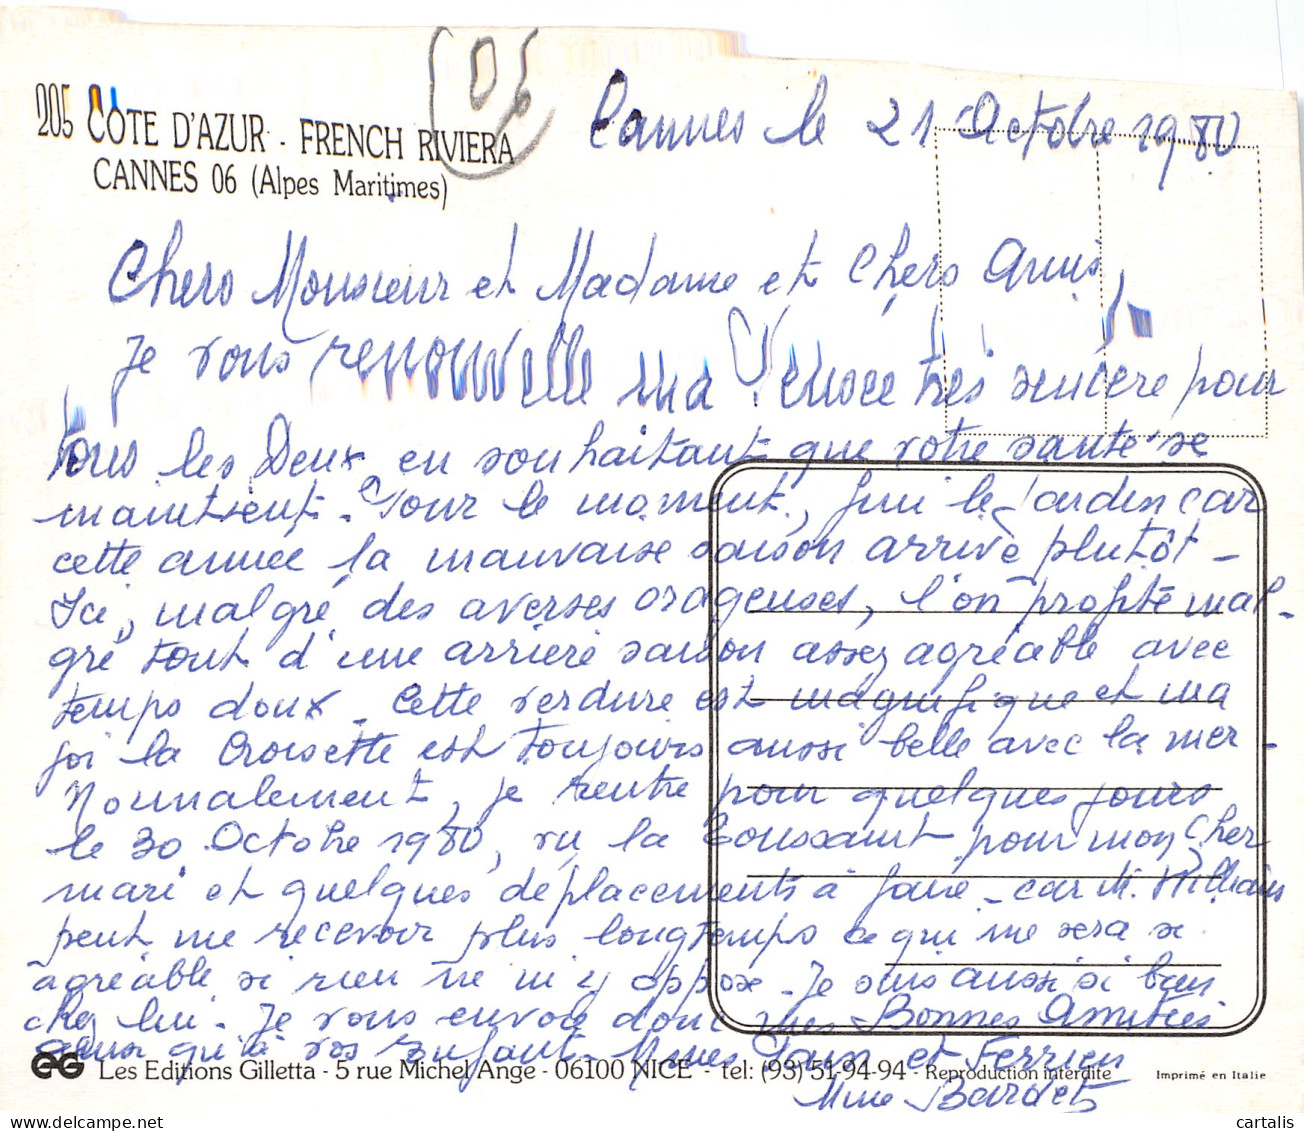 06
205 CÔTE D'AZUR - FRENCH RIVIERA
CANNES 06 (Alpes Maritimes)
Cannes le 21 Octobre 1980
Chers Monsieur et Madame et Chers Amis,
Je vous renouvelle ma Pensée très sincère pour
tous les Deux en souhaitant que votre santé se
maintient. Pour le moment, fini le Jardin car
cette année la mauvaise saison arrive plutôt -
Ici, malgré des averses orageuses, l'on profite mal-
gré tout d'une arrière saison assez agréable avec
temps doux. Cette verdure est magnifique et ma
foi la Croisette est toujours aussi belle avec la mer -
Normalement, je rentre pour quelques jours
le 30 Octobre 1980, vu la Toussaint pour mon Cher
mari et quelques déplacements à faire - car M. Williams
peut me recevoir plus longtemps ce qui me sera si
agréable si rien ne m'y oppose. Je suis aussi si bien
chez lui. Je vous envoie donc mes Bonnes Amitiés
ainsi qu'à vos Enfants. Mmes et Ferrien
Mme Bardet
EG Les Editions Gilletta - 5 rue Michel Ange - 06100 NICE - tel: (93) 51-94-94 - Reproduction interdite
Imprimé en Italie
cartalis